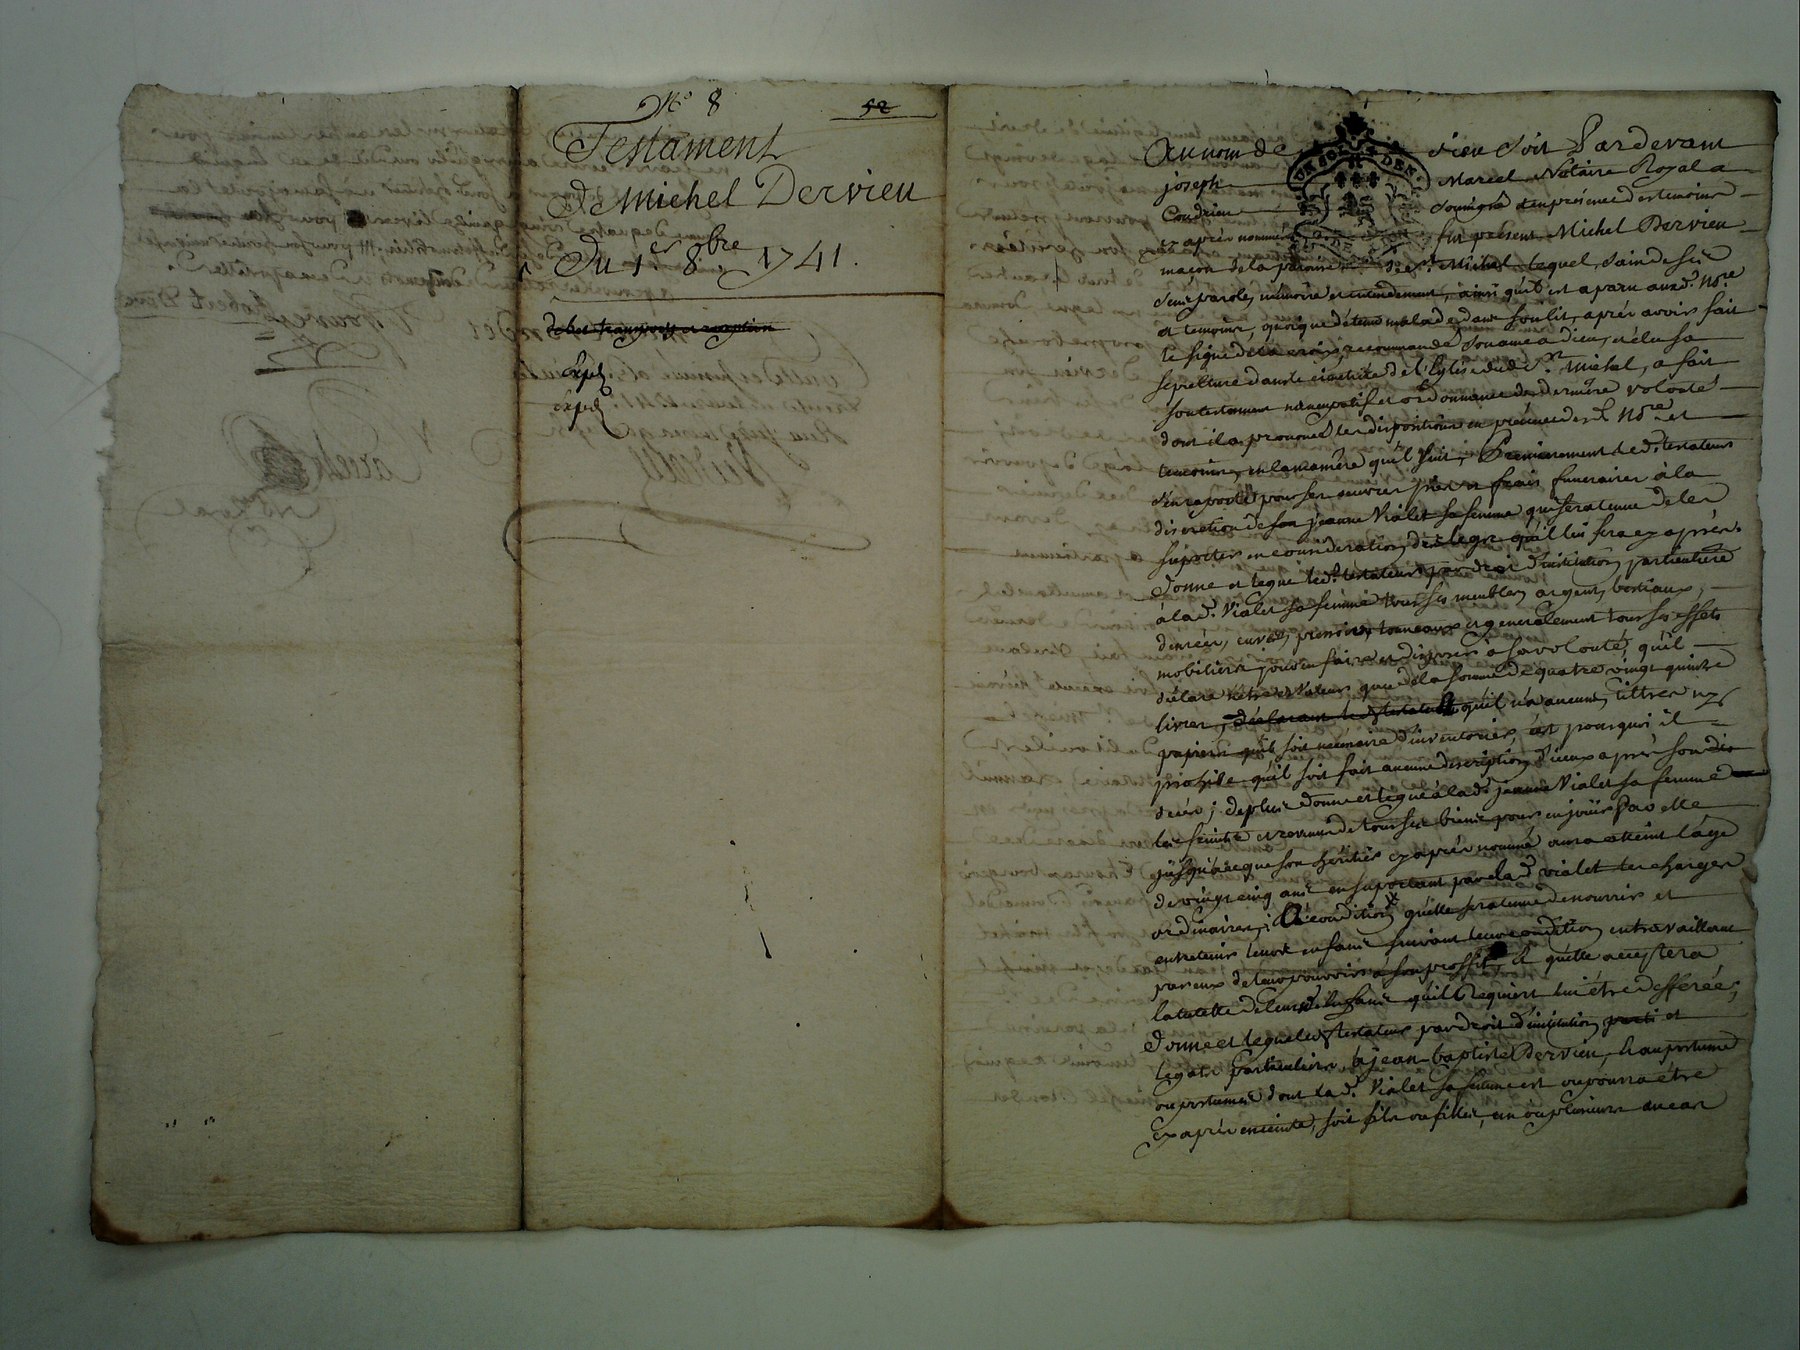 N° 8
52
Testament
de Michel Dervieu
Du 1er 8bre 1741.
debet transport et reception
Exped
exped
Au nom de dieu soit Pardevant
joseph Marcel Notaire Royal a
Condrieu soussigné et en présence des temoins
cy après nommés fut présent Michel Dervieu
maçon de la paroisse de St. Michel lequel, sain de ses
sens, parole, mémoire et entendement, ainsi qu'il est aparu audt. Nore
et temoins, quoique détenu malade dans son lit, après avoir fait
le signe de la croix, recommandé son ame a dieu, et élu sa
sepulture dans le cimetiere de l'Eglise dud. St. Michel, a fait
son testament nuncupatif et ordonnance de derniére volonté
dont il a prononcé les dispositions en présence desd. Nore et
temoins, en la maniére qu'il suit, Premierement led. testateur
s'en raporte pour ses œuvres pies et frais funeraires à la
discretion de jeanne Vialet sa femme qui sera tenue de les
suporter en consideration du legs qu'il lui fera cy après.
Donne et legue led. testateur par droit d'institution particuliére
à lad. Vialet sa femme tous ses meubles, argent, bestiaux,
denrées, cuves, pressoirs, tonneaux et generalement tous ses effets
mobiliers pour en faire et disposer a sa volonté, qu'il
déclare n'etre de valeur que de la somme de quatre vingt quinze
livres, déclarant led. testateur qu'il n'a aucuns tittres ny
papiers qu'il soit nécessaire d'inventorier, c'est pourquoi il
prohibe qu'il soit fait aucune description d'iceux après son
decés; de plus donne et legue à lad. jeanne Vialet sa femme
les fruits et revenus de tous ses biens pour en joüir par elle
jusqu'à ce que son héritier cy après nommé aura atteint l'age
de vingt cinq ans en suportant par lad. vialet les charges
ordinaires; A condition qu'elle sera tenue de nourrir et
entretenir leurs enfans suivant leur condition en travaillant
par eux de leur pouvoir à son proffit, et qu'elle acceptera
la tutelle de leursd. enfans qu'il Requiert lui être defferée;
Donne et legue led. testateur par droit d'institution parti et
legat particulier à jean-baptiste Dervieu, au postume
ou postumes dont lad. Vialet sa femme est ou pourra être
cy après enceinte, soit fils ou filles, un ou plusieurs au cas